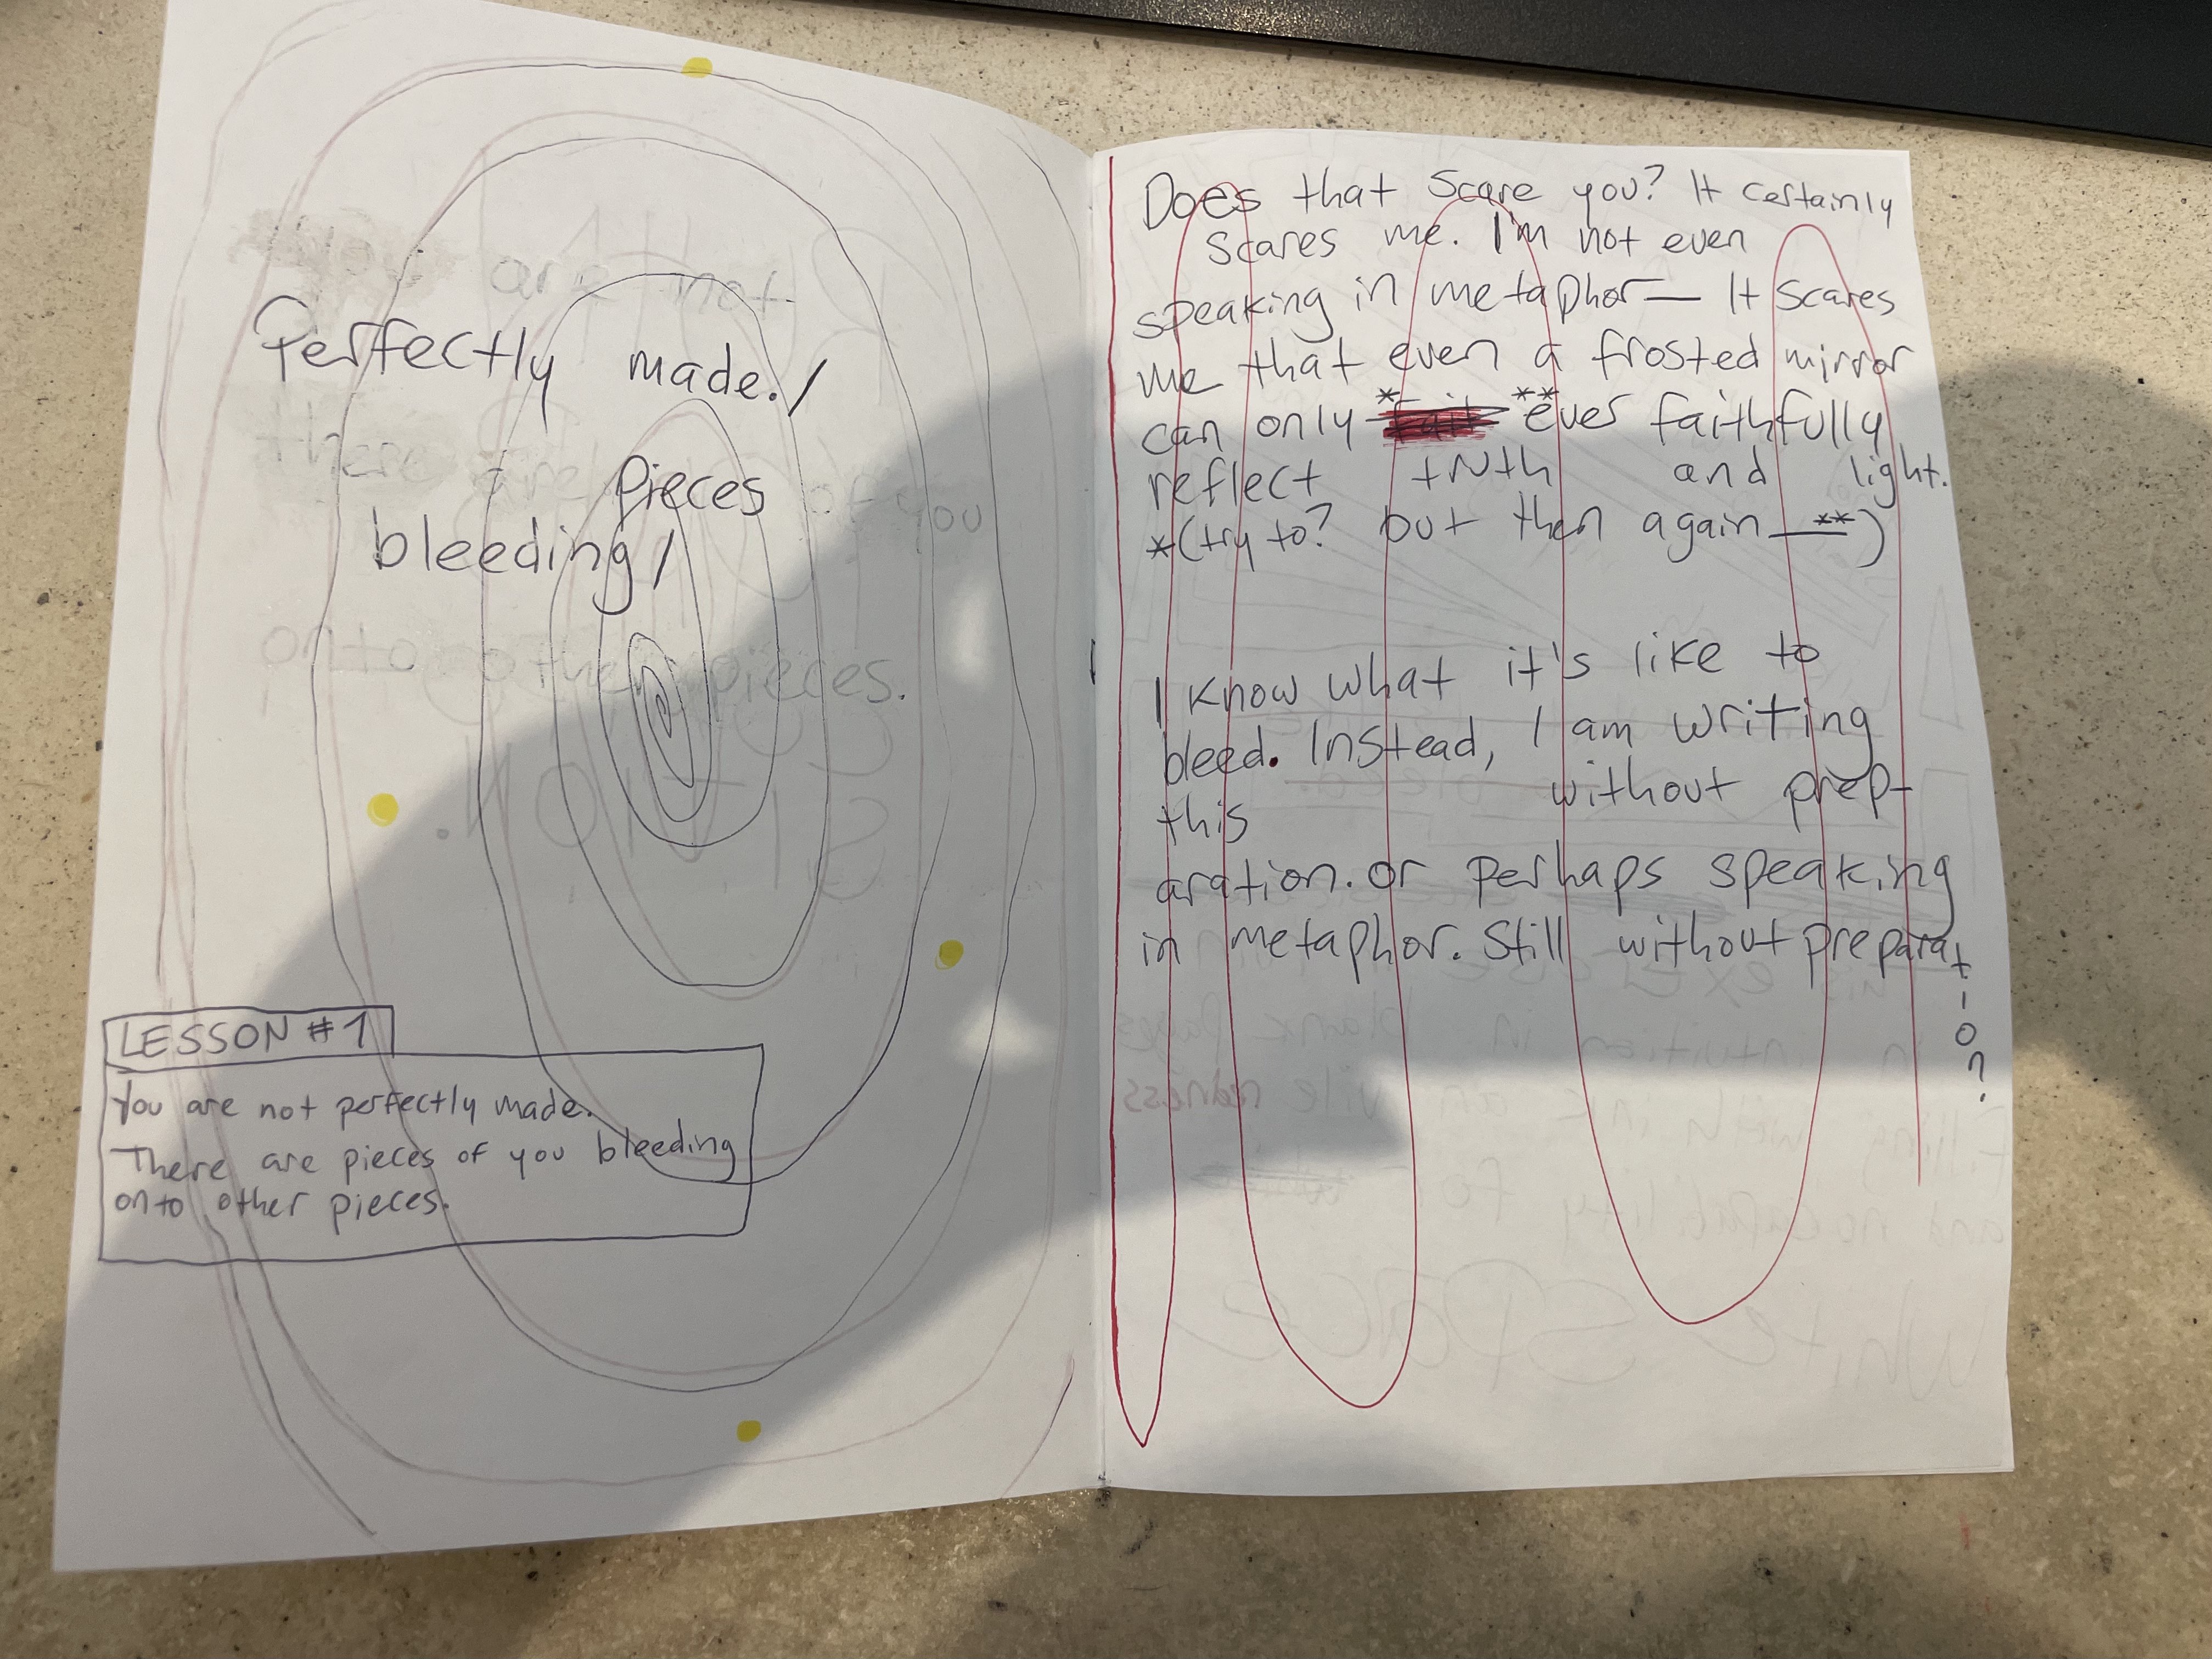 You are not
Perfectly made./
there are of you
Pieces
bleeding/
onto other pieces.
LESSON #1
You are not perfectly made.
There are pieces of you bleeding
onto other pieces.
Does that scare you? It certainly
scares me. I'm not even
speaking in metaphor— It scares
me that even a frosted mirror
can only * ** ever faithfully
reflect truth and light.
*(try to? but then again __**__)
I know what it's like to
bleed. Instead, I am writing
this without prep-
aration. or perhaps speaking
in metaphor. Still without preparat
i
o
n?